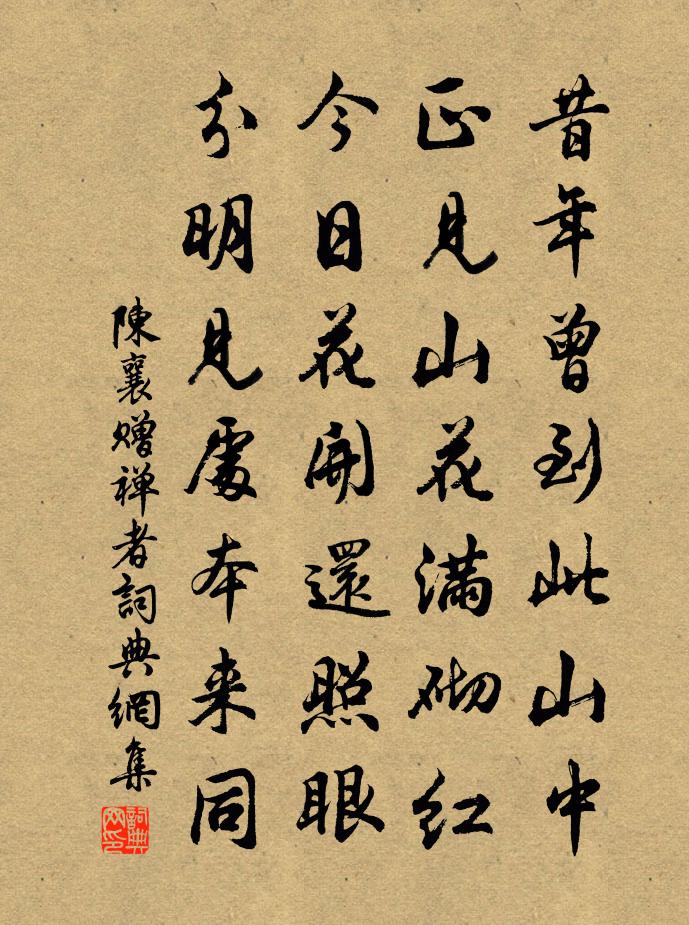 昔年曾到此山中
正見山花滿砌紅
今日花開還照眼
分明見處本来同
陳襄贈禅者詞典網集
詞典网印